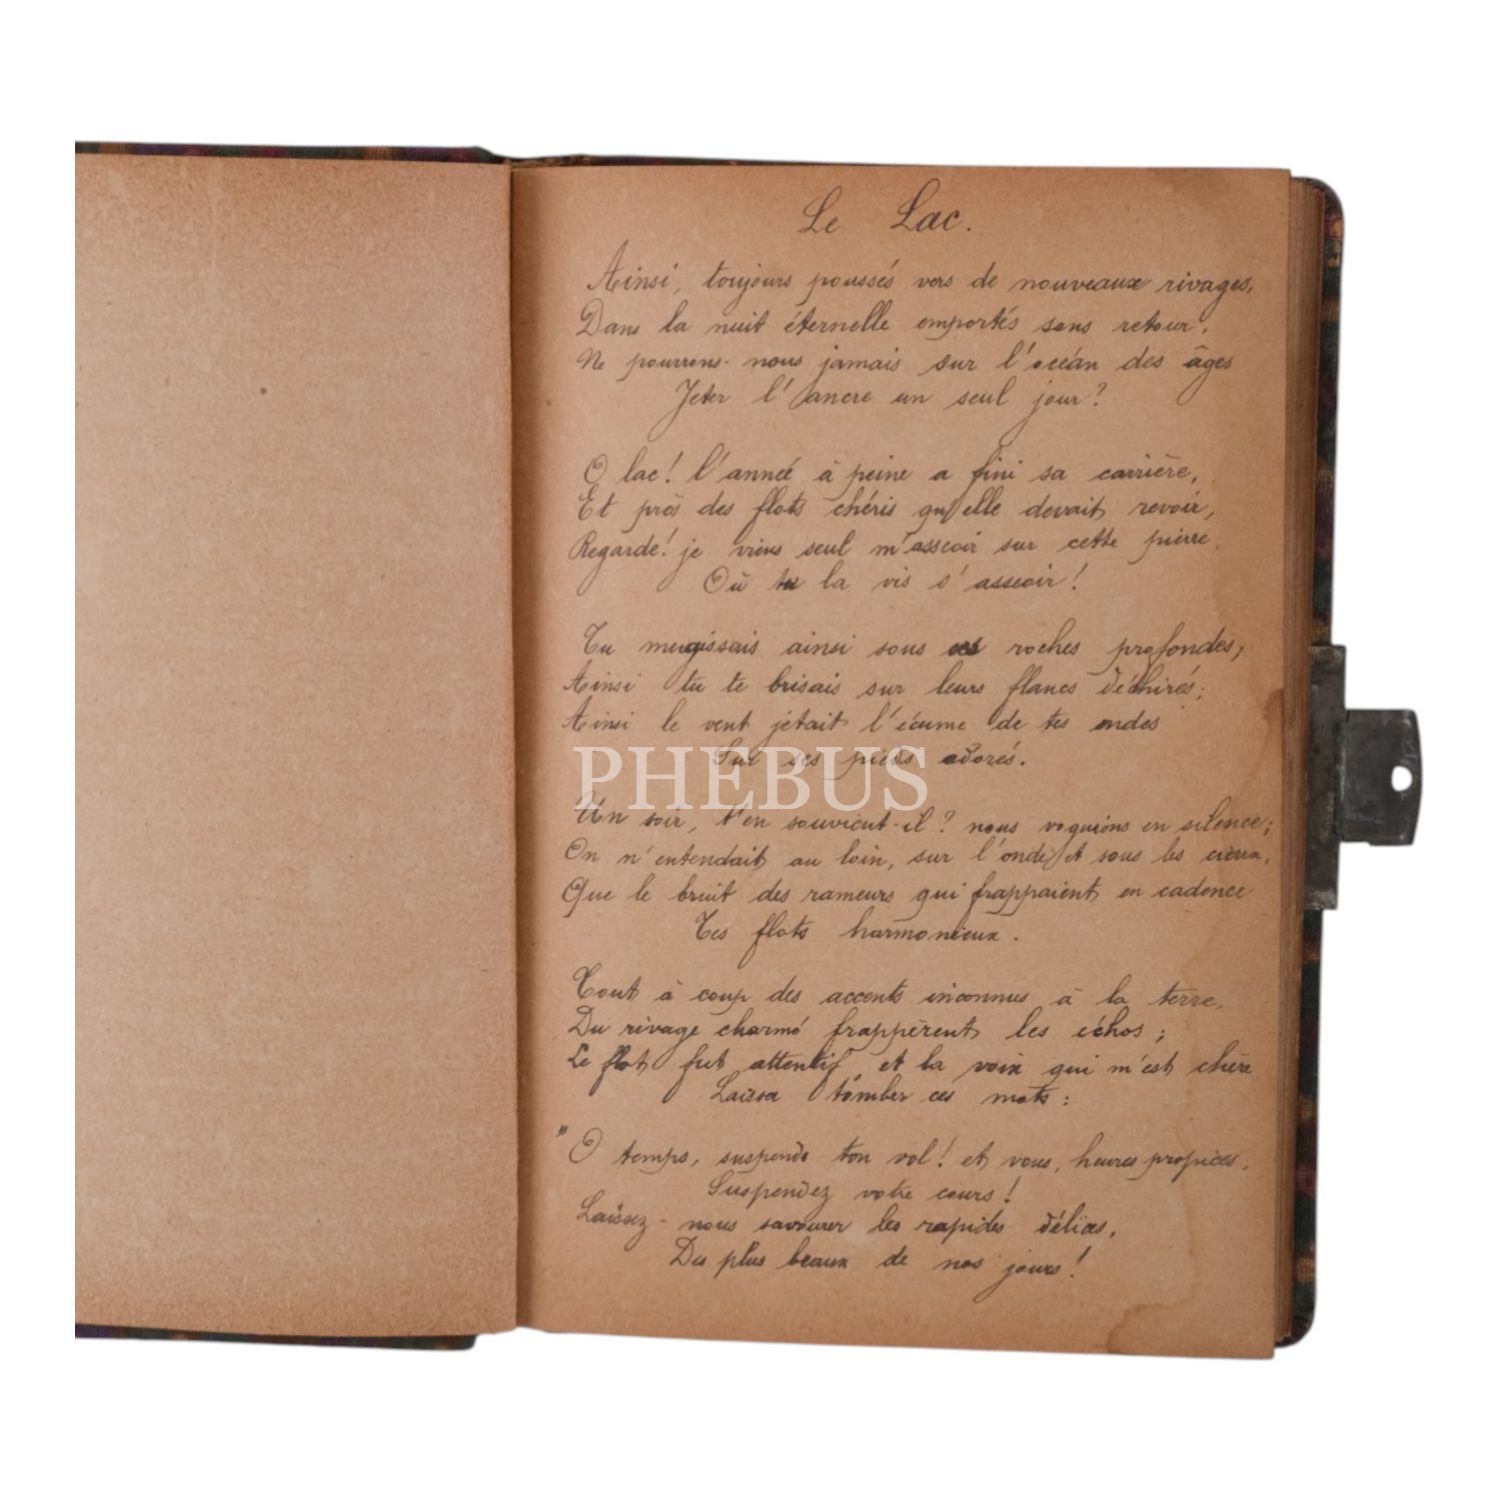 Le Lac.
Ainsi, toujours poussés vers de nouveaux rivages,
Dans la nuit éternelle emportés sans retour,
Ne pourrons-nous jamais sur l'océan des âges
Jeter l'ancre un seul jour?
O lac! l'année à peine a fini sa carrière,
Et près des flots chéris qu'elle devait revoir,
Regarde! je viens seul m'asseoir sur cette pierre
Où tu la vis s'asseoir!
Tu mugissais ainsi sous ces roches profondes;
Ainsi tu te brisais sur leurs flancs déchirés;
Ainsi le vent jetait l'écume de tes ondes
Sur ses pieds adorés.
PHEBUS
Un soir, t'en souvient-il? nous voguions en silence;
On n'entendait au loin, sur l'onde et sous les cieux,
Que le bruit des rameurs qui frappaient en cadence
Tes flots harmonieux.
Tout à coup des accents inconnus à la terre,
Du rivage charmé frappèrent les échos;
Le flot fut attentif, et la voix qui m'est chère
Laissa tomber ces mots:
"O temps, suspends ton vol! et vous, heures propices,
Suspendez votre cours!
Laissez-nous savourer les rapides délices,
Des plus beaux de nos jours!